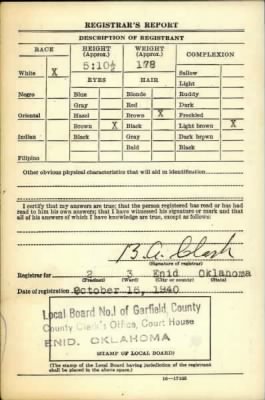 REGISTRAR'S REPORT
DESCRIPTION OF REGISTRANT
RACE HEIGHT (Approx.) WEIGHT (Approx.) COMPLEXION
White X 5:10½ 178 Sallow
EYES HAIR Light
Negro Blue Blonde Ruddy
Gray Red Dark
Oriental Hazel Brown X Freckled
Brown X Black Light brown X
Indian Black Gray Dark brown
Bald Black
Filipino
Other obvious physical characteristics that will aid in identification
I certify that my answers are true; that the person registered has read or has had
read to him his own answers; that I have witnessed his signature or mark and that
all of his answers of which I have knowledge are true, except as follows:
B. A. Clark
(Signature of registrar)
Registrar for 2 3 Enid Oklahoma
(Precinct) (Ward) (City or county) (State)
Date of registration October 16, 1940
Local Board No.1 of Garfield, County
County Clerk's Office, Court House
ENID, OKLAHOMA
(STAMP OF LOCAL BOARD)
(The stamp of the Local Board having jurisdiction of the registrant shall be placed in the above space.)
16—17105